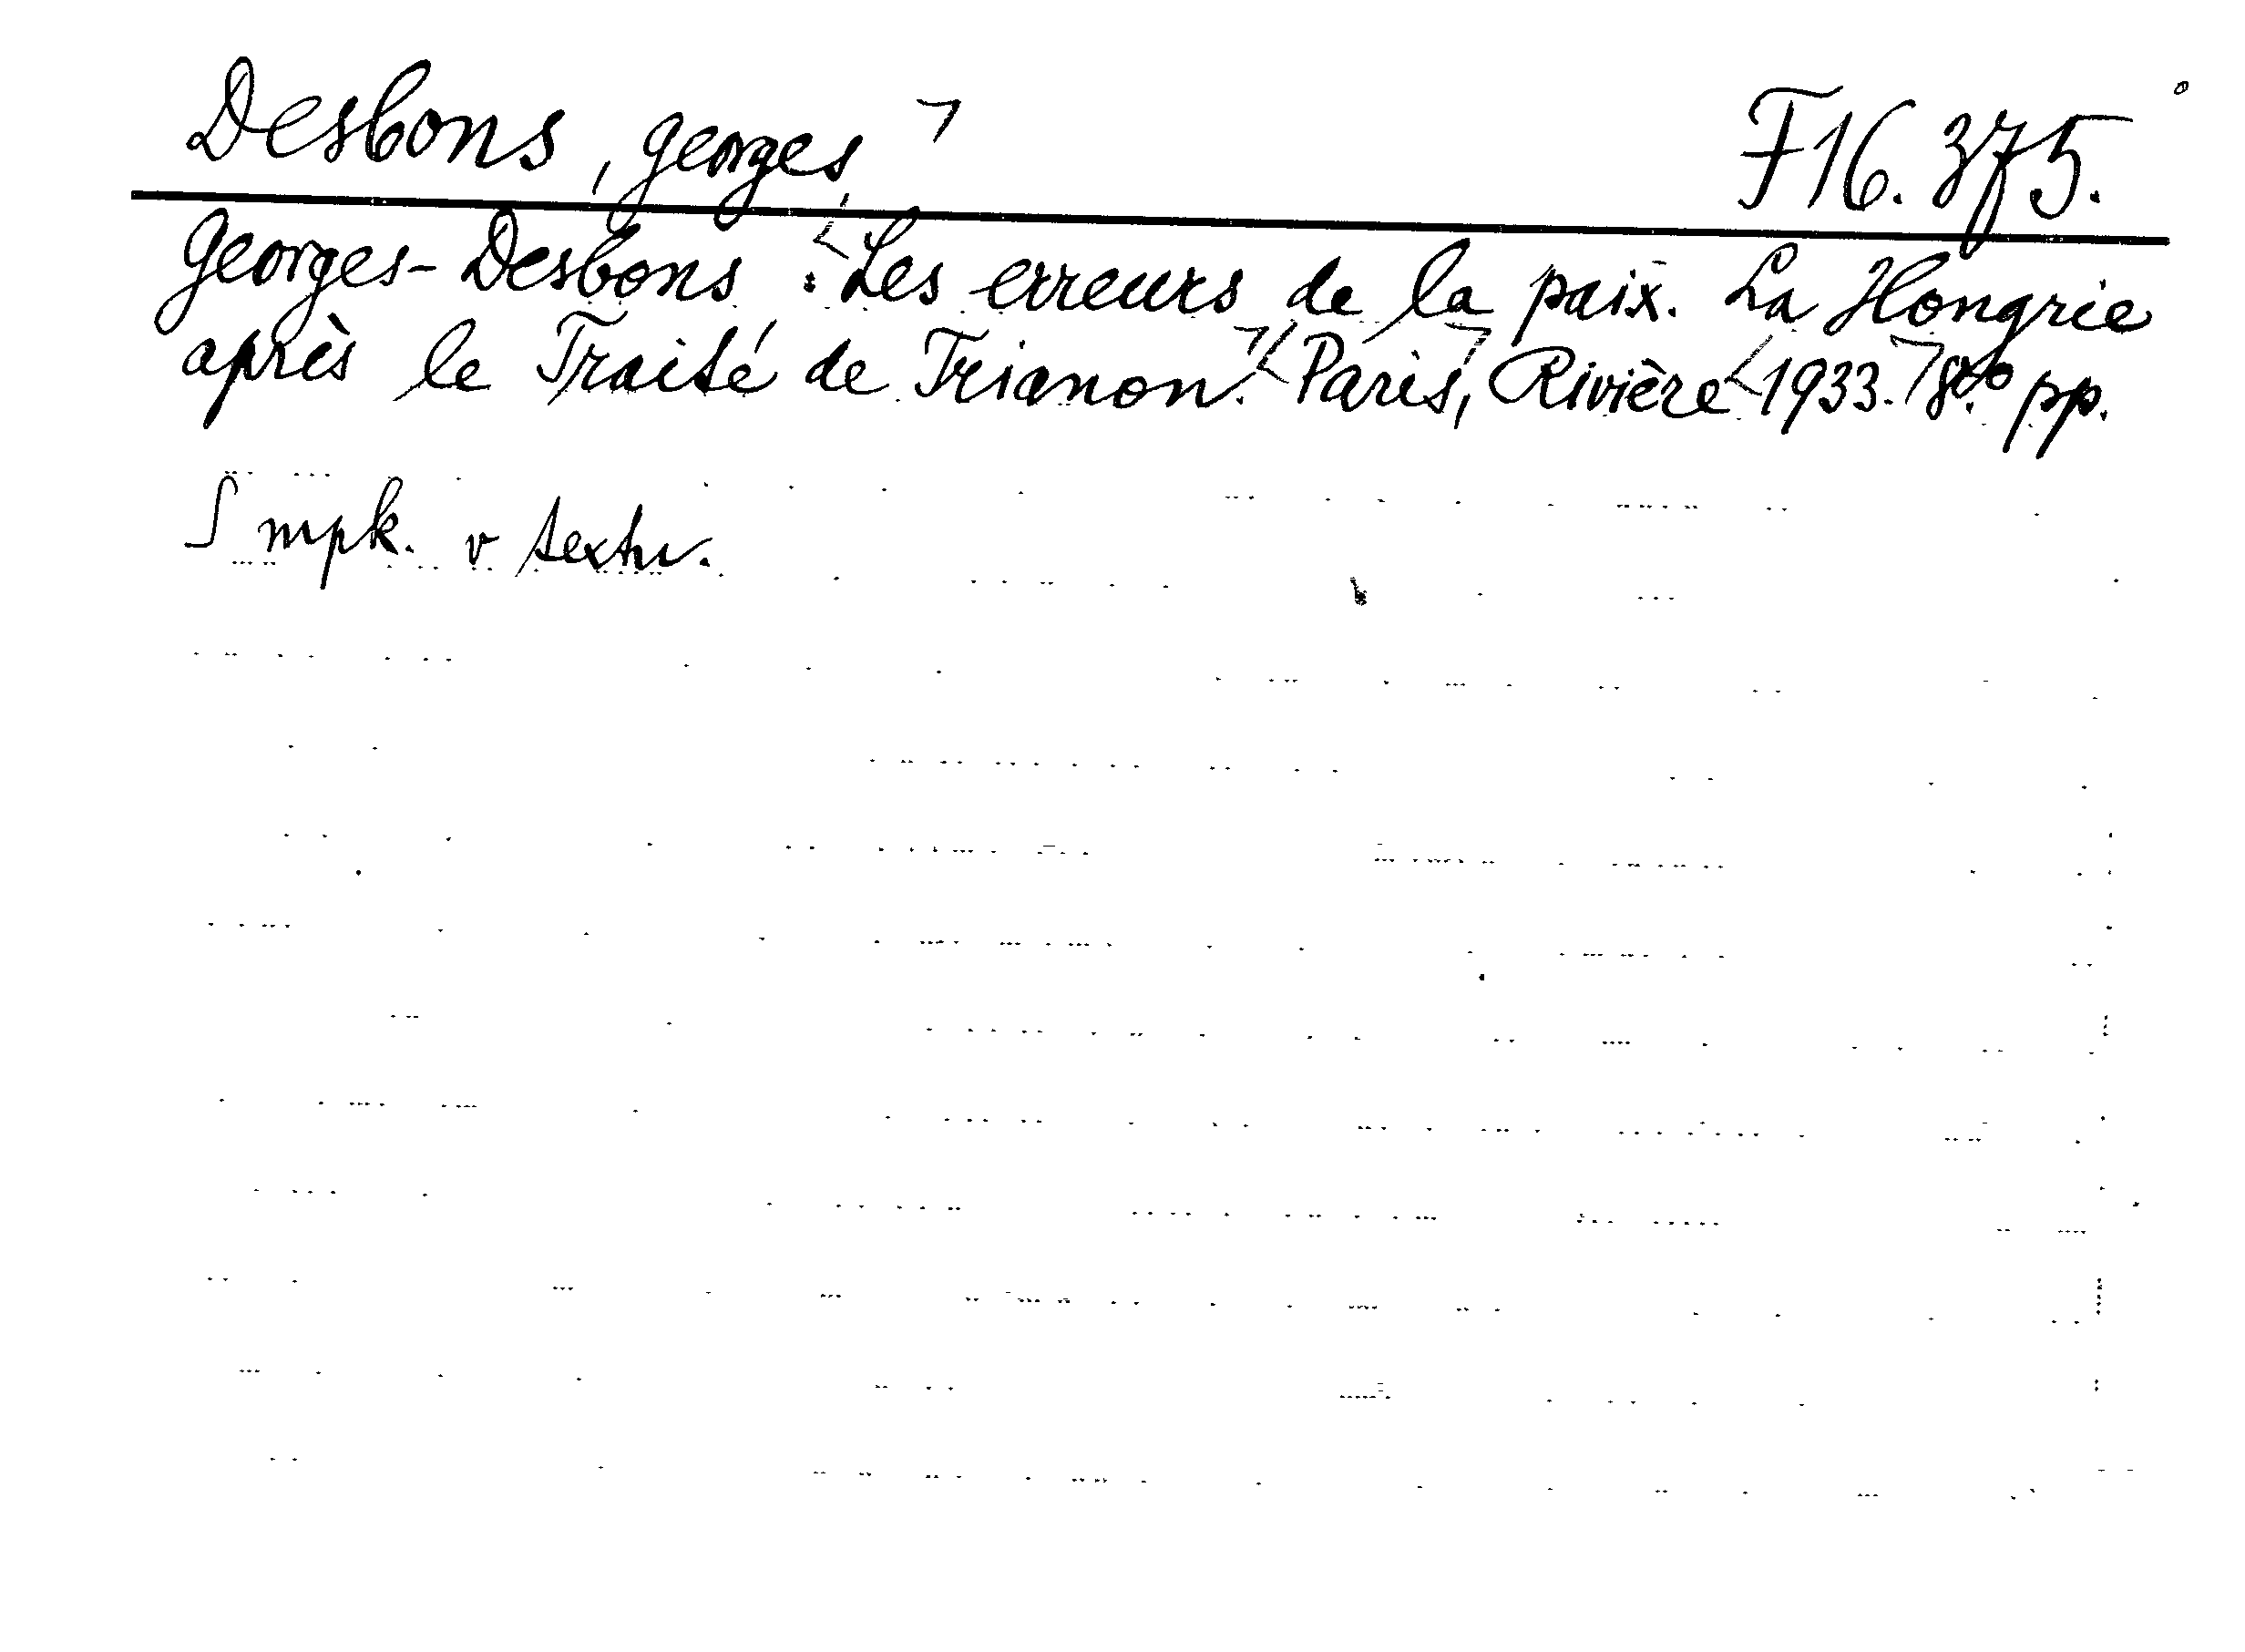 Desbons, Georges F16.375.
Georges-Desbons : Les erreurs de la paix. La Hongrie
après le Traité de Trianon. Paris, Rivière 1933. 8° pp.
S mpk. v textu.